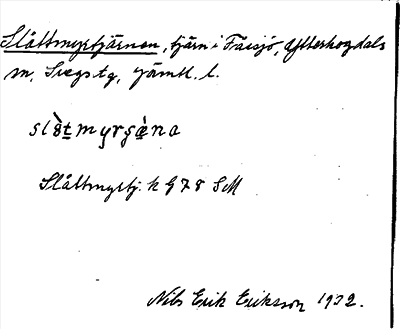 Slåttmyrtjärnen, tjärn i Fåssjö, Ytterhogdals
sn, Svegs tg, Jämtl. l.
slòtmyrʂæ̀na
Slåttmyrtj. k G 78 SM
Nils Erik Eriksson 1932.